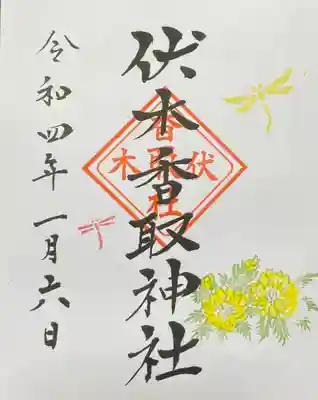 伏木香取神社
伏木
香取
社
令和四年一月六日